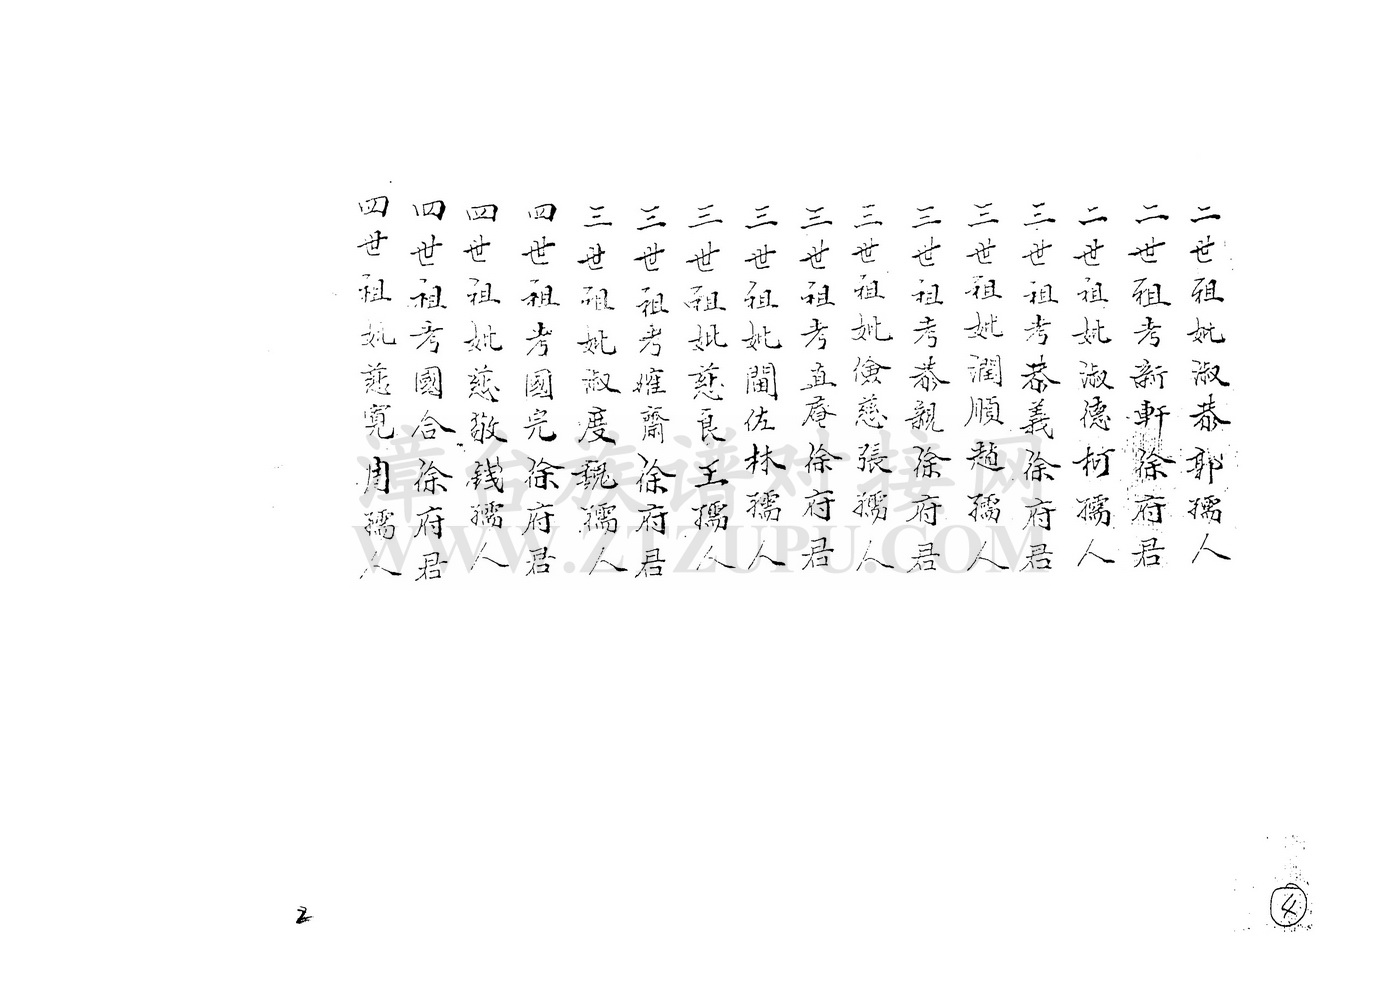 二世祖妣淑恭郭孺人
二世祖考新軒徐府君
二世祖妣淑德柯孺人
三世祖考恭義徐府君
三世祖妣潤順趙孺人
三世祖考恭親徐府君
三世祖妣儉慈張孺人
三世祖考直庵徐府君
三世祖妣閩佐林孺人
三世祖妣慈良王孺人
三世祖考㩁齋徐府君
三世祖妣淑度魏孺人
四世祖考國完徐府君
四世祖妣慈敬錢孺人
四世祖考國合徐府君
四世祖妣慈寬周孺人
漳台族谱对接网
WWW.ZTZUPU.COM
2
4